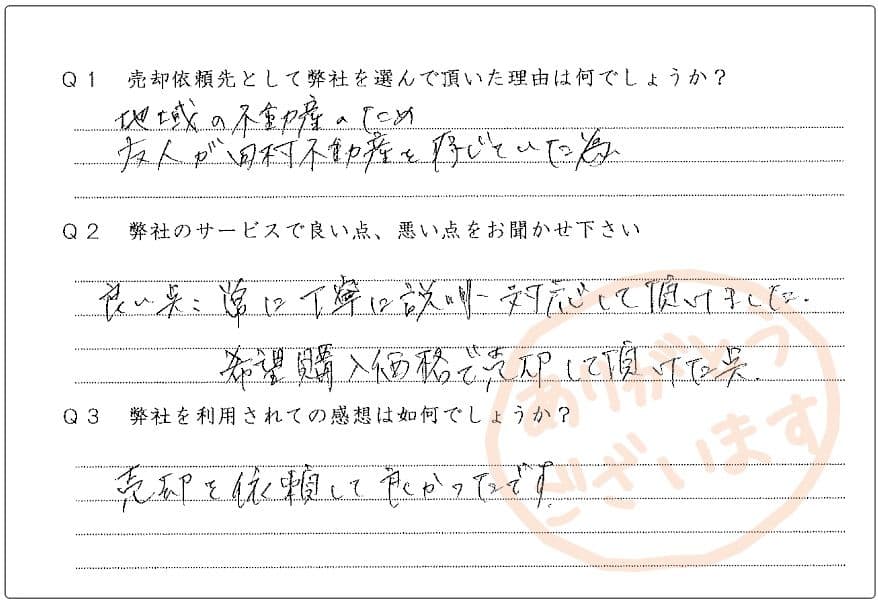 Q1 売却依頼先として弊社を選んで頂いた理由は何でしょうか？
地域の不動産のため
友人が田村不動産を存じていた為
Q2 弊社のサービスで良い点、悪い点をお聞かせ下さい
良い点：常に丁寧に説明・対応して頂けました。
希望購入価格で売却して頂けた点。
Q3 弊社を利用されての感想は如何でしょうか？
売却を依頼して良かったです。
ありがとう
ございます